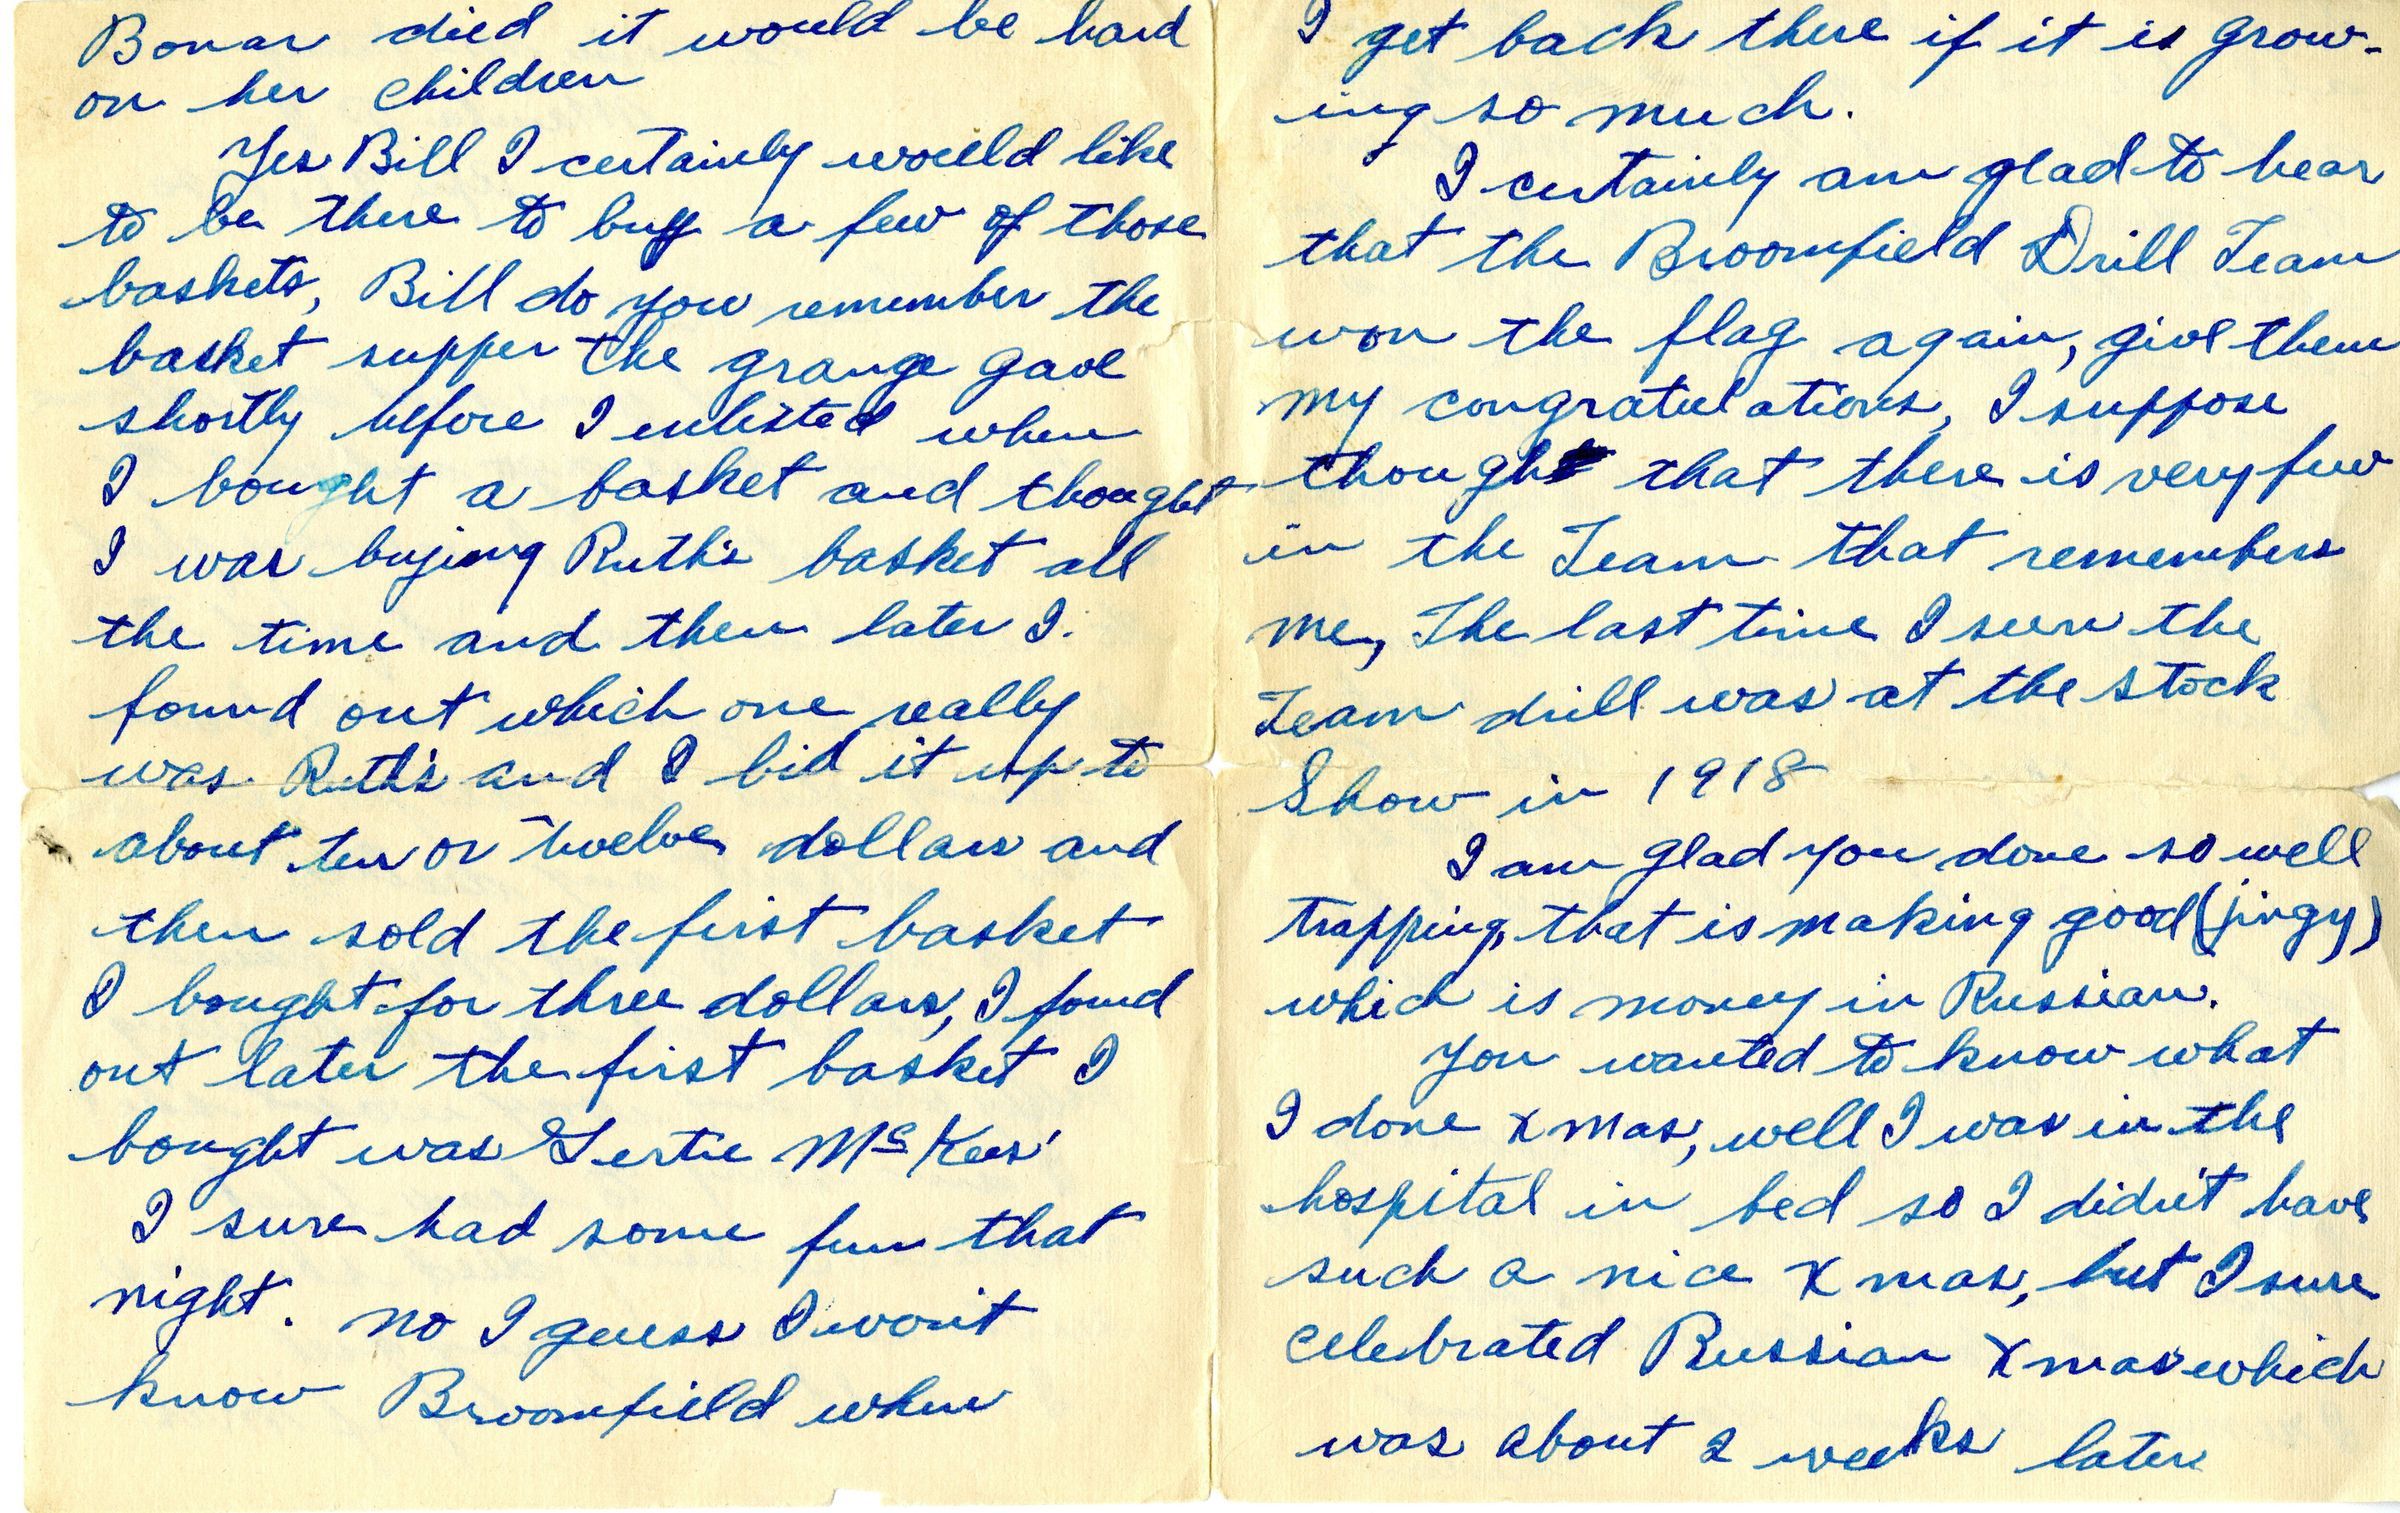 Bonar died it would be hard
on her children
Yes Bill I certainly would like
to be there to buy a few of those
baskets, Bill do you remember the
basket supper the grange gave
shortly before I enlisted when
I bought a basket and thought
I was buying Ruth's basket all
the time and then later I
found out which one really
was Ruth's and I bid it up to
about ten or twelve dollars and
then sold the first basket
I bought for three dollars, I found
out later the first basket I
bought was Gertie McKees'
I sure had some fun that
night. No I guess I won't
know Broomfield when
I get back there if it is grow-
ing so much.
I certainly am glad to hear
that the Broomfield Drill Team
won the flag again, give them
my congratulations, I suppose
though that there is very few
in the Team that remembers
me, The last time I seen the
Team drill was at the Stock
Show in 1918
I am glad you done so well
trapping, that is making good (jingy)
which is money in Russian.
You wanted to know what
I done Xmas, well I was in the
hospital in bed so I didn't have
such a nice Xmas, but I sure
celebrated Russian Xmas which
was about 2 weeks later